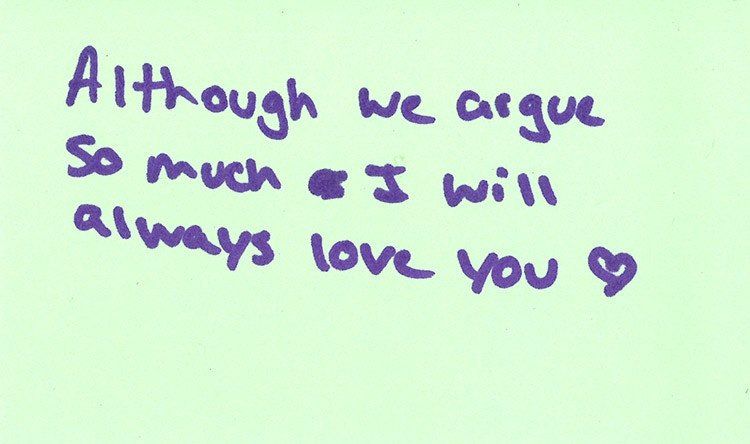 Although we argue
so much I will
always love you ♡